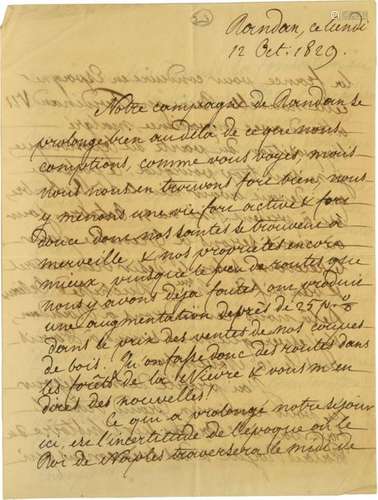 Randan, ce lundi
12 Oct. 1829.
Notre campagne de Randan se
prolonge bien au delà de ce que nous
comptions, comme vous voyez, mais
nous nous en trouvons fort bien, nous
y menons une vie fort active & fort
douce dont nos santés se trouvent à
merveille & nos propriétés encore
mieux puisque le peu de routes que
nous y avons déjà faites, ont produit
une augmentation de près de 25 p. %
dans le prix des ventes de nos coupes
de bois. donc des routes dans
les forêts de la Nièvre & vous m'en
direz des nouvelles!
Ce qui a prolongé notre séjour
ici est l'incertitude de l'époque où le
Roi de Naples traversera le midi de